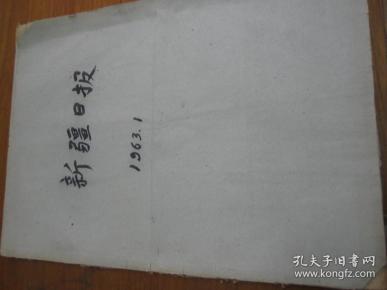 新疆日报
1963.1
孔夫子旧书网
www.kongfz.com